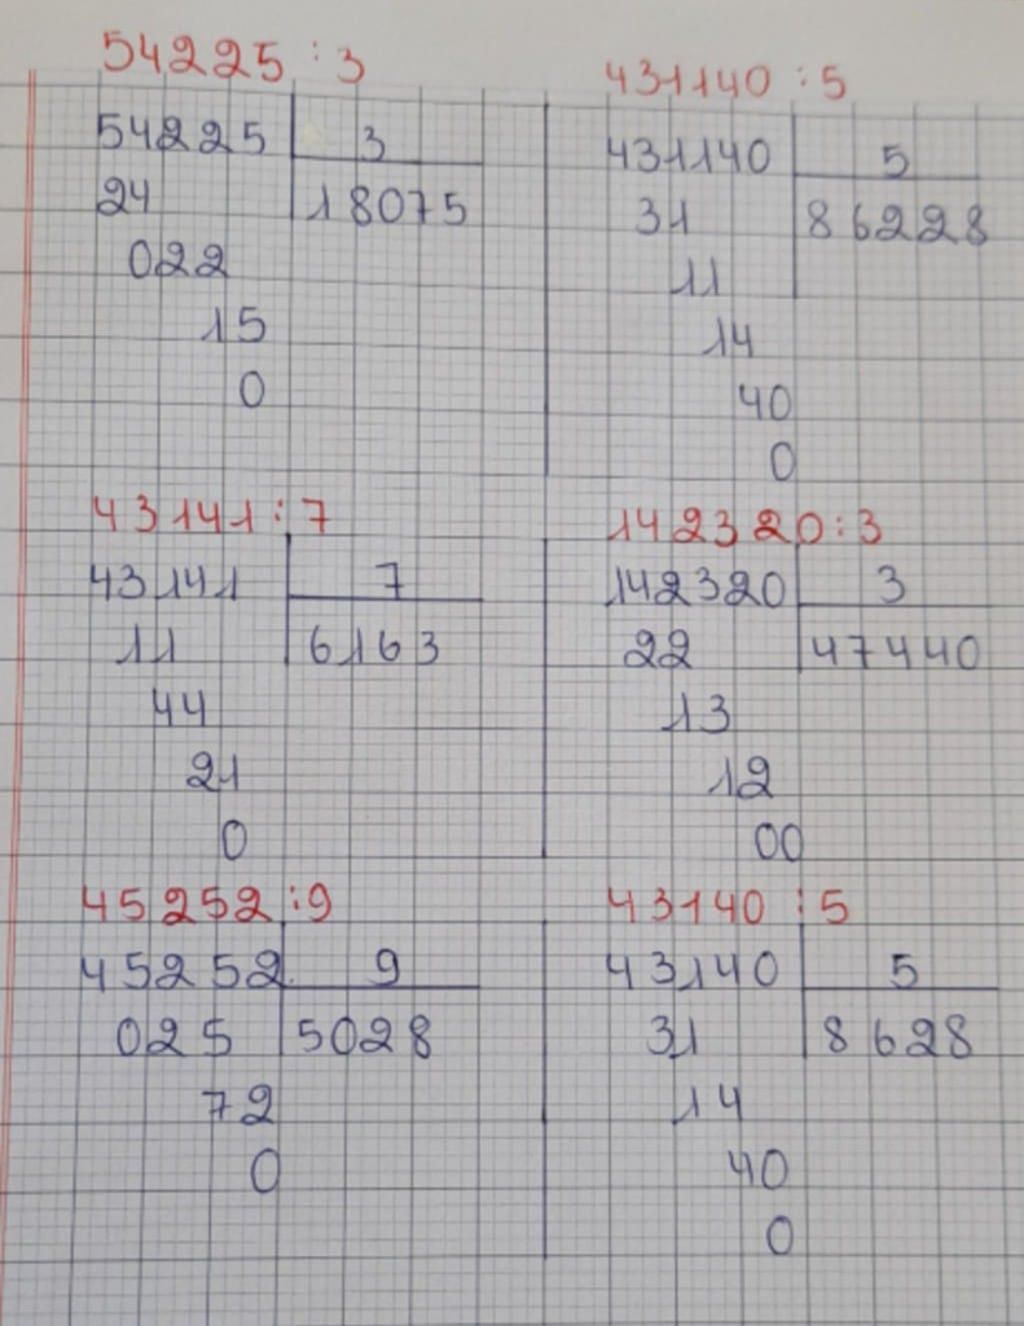 54225 : 3
54225 3
24 18075
022
15
0
431140 : 5
431140 5
31 86228
11
14
40
0
43141 : 7
43141 7
11 6163
44
21
0
142320 : 3
142320 3
22 47440
13
12
00
45252 : 9
45252 9
025 5028
72
0
43140 : 5
43140 5
31 8628
14
40
0